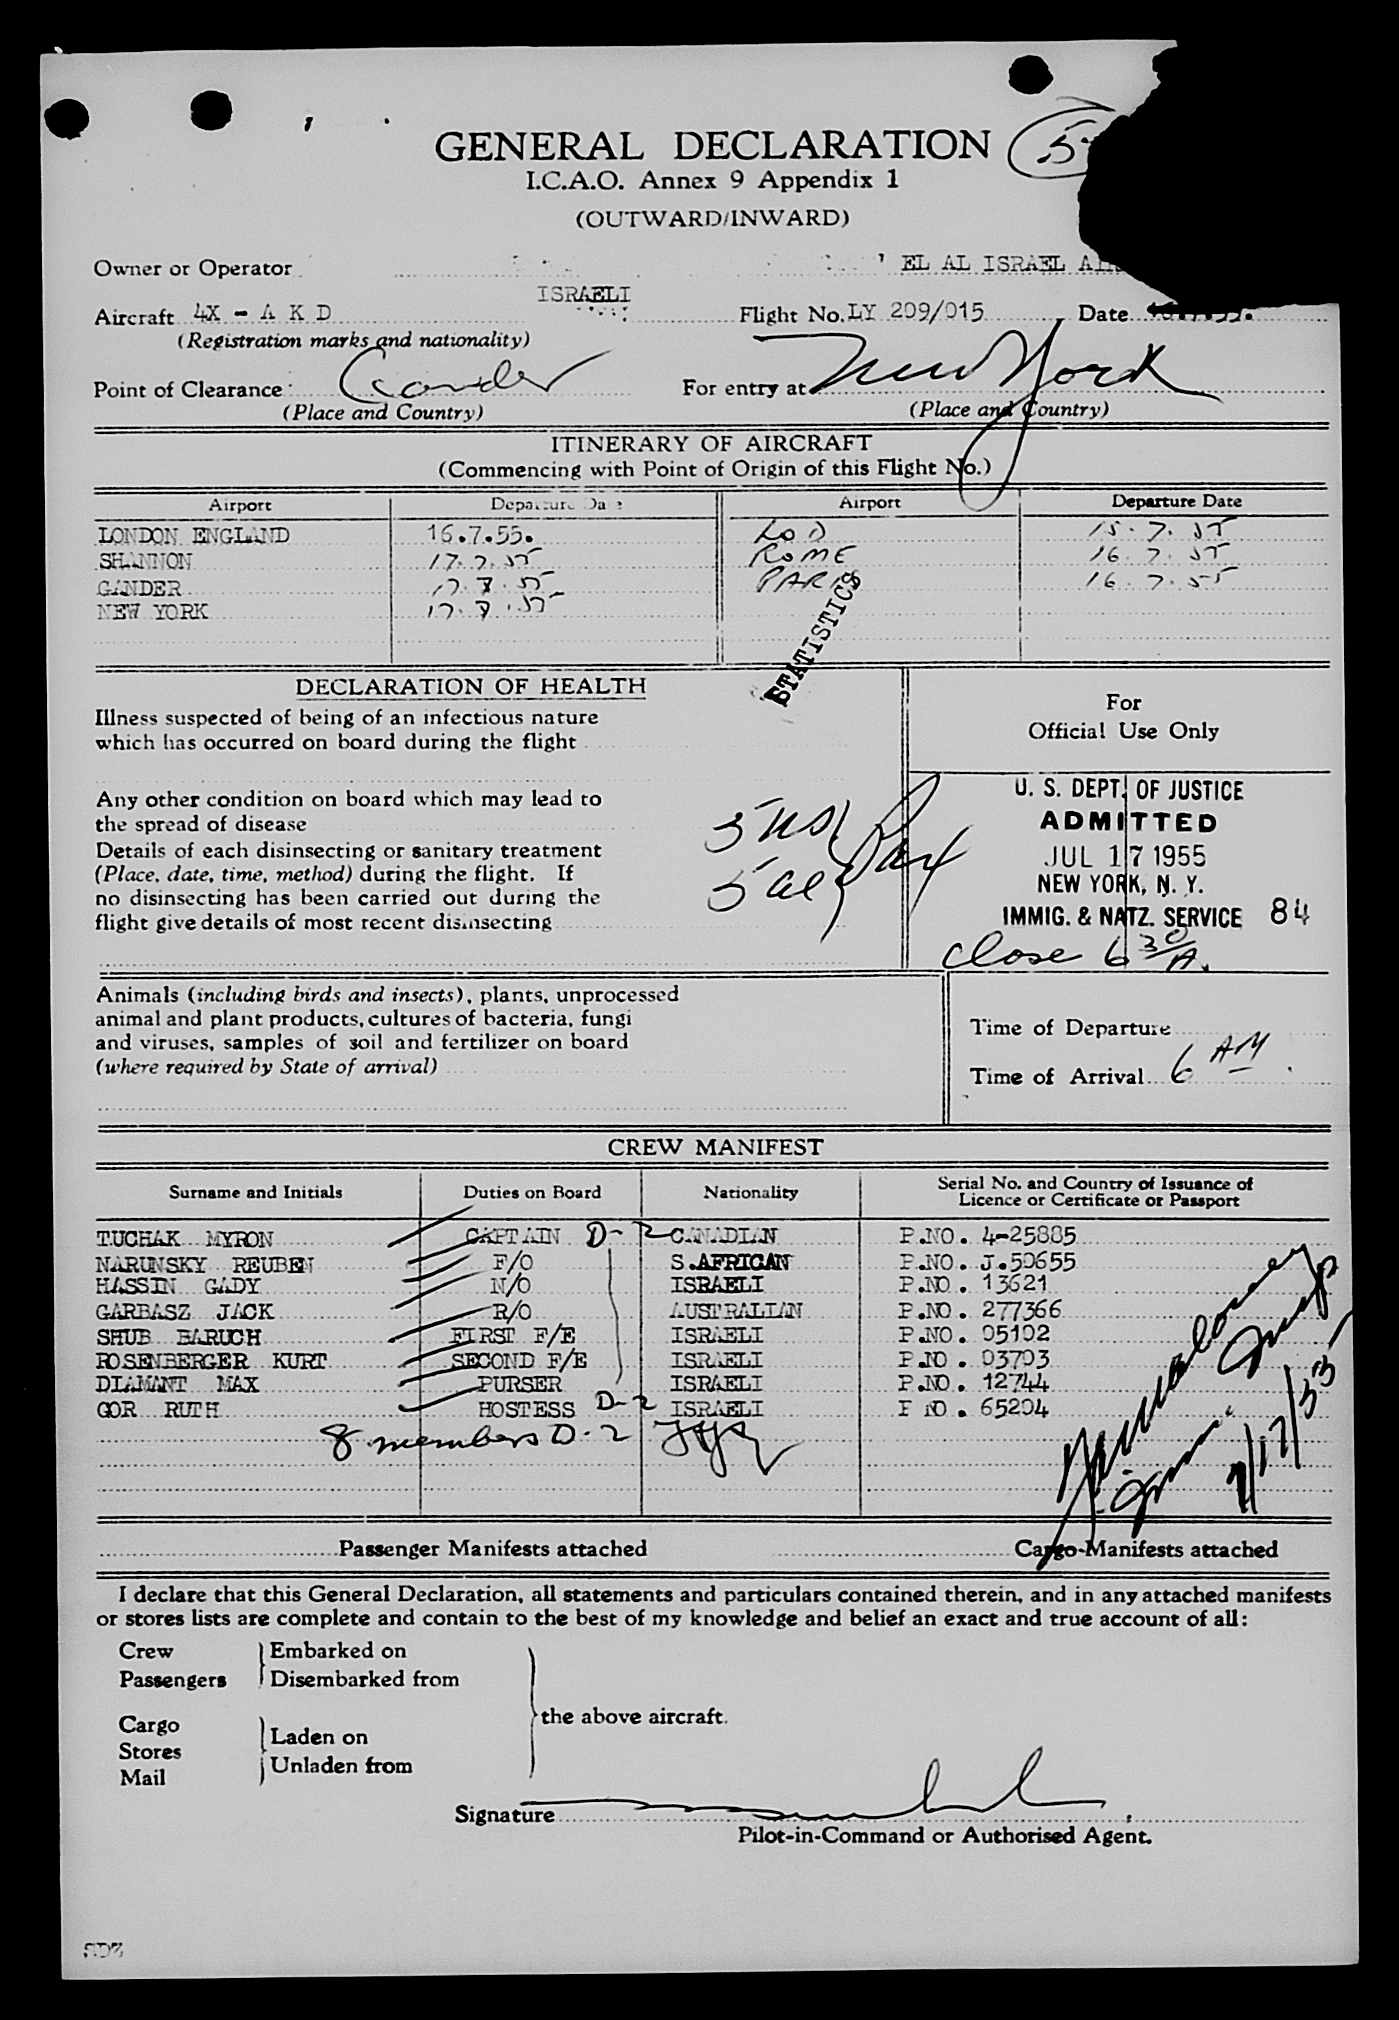 GENERAL DECLARATION
I.C.A.O. Annex 9 Appendix 1
(OUTWARD/INWARD)
Owner or Operator EL AL ISRAEL
ISRAELI
Aircraft 4X - A K D Flight No. LY 209/015 Date
(Registration marks and nationality)
Point of Clearance Gander For entry at New York
(Place and Country) (Place and Country)
ITINERARY OF AIRCRAFT
(Commencing with Point of Origin of this Flight No.)
Airport Departure Date Airport Departure Date
LONDON ENGLAND 16.7.55. LOD 15.7.55
SHANNON 17.7.55 ROME 16.7.55
GANDER 17.7.55 PARIS 16.7.55
NEW YORK 17.7.55
STATISTICS
DECLARATION OF HEALTH
Illness suspected of being of an infectious nature
which has occurred on board during the flight
Any other condition on board which may lead to
the spread of disease
Details of each disinsecting or sanitary treatment
(Place, date, time, method) during the flight. If
no disinsecting has been carried out during the
flight give details of most recent disinsecting
5 US
5 al Pax
For
Official Use Only
U. S. DEPT. OF JUSTICE
ADMITTED
JUL 17 1955
NEW YORK, N. Y.
IMMIG. & NATZ. SERVICE 84
close 6 30 A.
Animals (including birds and insects), plants, unprocessed
animal and plant products, cultures of bacteria, fungi
and viruses, samples of soil and fertilizer on board
(where required by State of arrival)
Time of Departure
Time of Arrival 6 AM
CREW MANIFEST
Surname and Initials Duties on Board Nationality Serial No. and Country of Issuance of Licence or Certificate or Passport
TUCHAK MYRON CAPTAIN D-2 CANADIAN P.NO. 4-25885
NARUNSKY REUBEN F/O S.AFRICAN P.NO. J.50655
HASSIN GADY N/O ISRAELI P.NO. 13621
GARBASZ JACK R/O AUSTRALIAN P.NO. 277366
SHUB BARUCH FIRST F/E ISRAELI P.NO. 05102
ROSENBERGER KURT SECOND F/E ISRAELI P.NO. 03703
DIAMANT MAX PURSER ISRAELI P.NO. 12744
GOR RUTH HOSTESS D-2 ISRAELI P NO. 65204
8 members D-2
7/17/55
Passenger Manifests attached Cargo Manifests attached
I declare that this General Declaration, all statements and particulars contained therein, and in any attached manifests
or stores lists are complete and contain to the best of my knowledge and belief an exact and true account of all:
Crew Embarked on
Passengers Disembarked from
the above aircraft.
Cargo
Stores Laden on
Mail Unladen from
Signature
Pilot-in-Command or Authorised Agent.